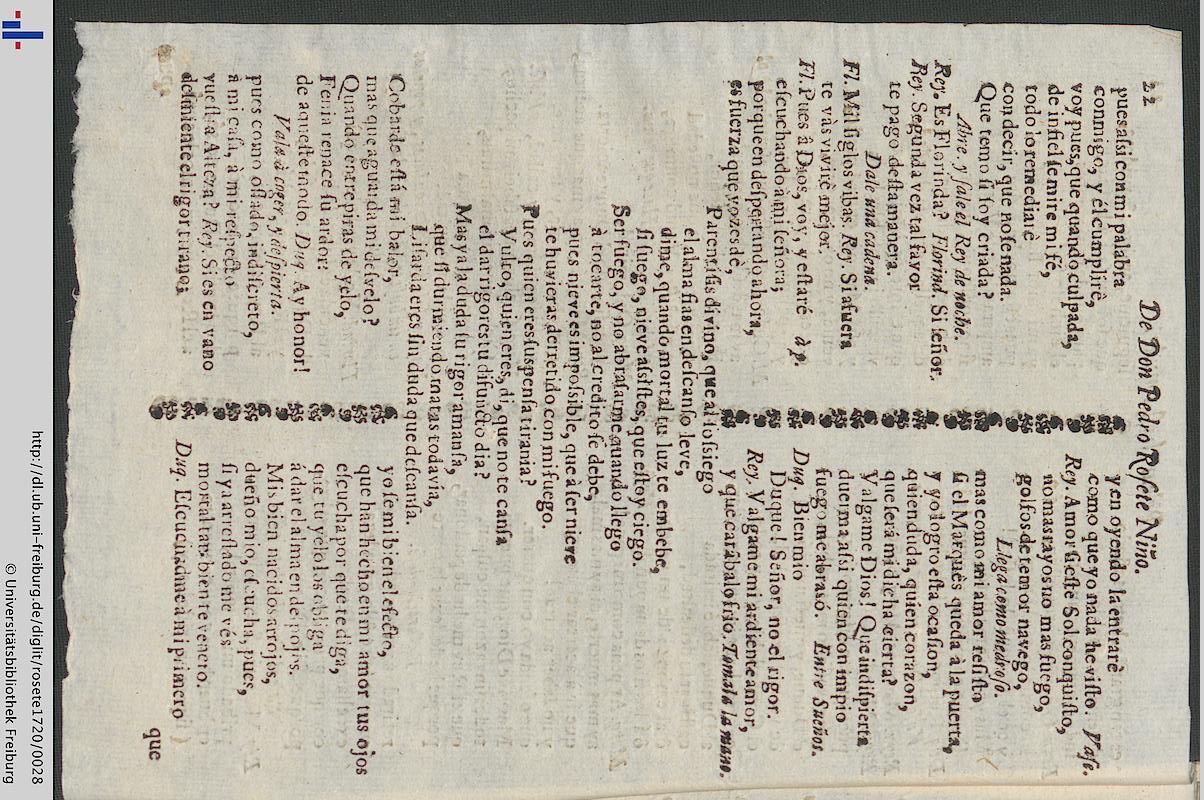 22 De Don Pedro Roſete Niño.
pues aſsi con mi palabra
conmigo, y él cumplirè,
voy pues, que quando culpada,
de infiel ſe mire mi fé,
todo lo remediarè
con decir, que no ſe nada.
Que temo ſi ſoy criada?
Abre, y ſale el Rey de noche.
Rey. Es Florinda? Florind. Si ſeñor.
Rey. Segunda vez tal favor
te pago deſta manera.
Dale una cadena.
Fl. Mil ſiglos vibas. Rey. Si afuera
te vàs vivirè mejor.
Fl. Pues â Dios, voy, y eſtaré àp.
eſcuchando a mi ſeñora;
porque en deſpertando ahora,
es fuerza que vozes dè,
y en oyendo la entrarè
como que yo nada he viſto. Vaſe.
Rey Amor ſi eſte Sol conquiſto,
no mas rayos no mas fuego,
golfos de temor navego,
Llega como medroſo.
mas como mi amor reſiſto
ſi el Marquès queda à la puerta,
y yo logro eſta ocaſion,
quien duda, quien corazon,
que ſerá mi dicha cierta?
Valgame Dios! Que indiſpierta
duerma aſsi quien con impio
fuego me abrasó. Entre Sueños.
Duq. Bien mio
Duque! Señor, no el rigor.
Rey. Valgame mi ardiente amor,
y que carábalo frio. Tomala la mano.
Parentiſis divino, que al ſoſsiego
el alma fias en deſcanſo leve,
dime, quando mortal tu luz te embebe,
ſi fuego, nieve aſsiſtes, que eſtoy ciego.
Ser fuego, y no abraſarme quando llego
à tocarte, no al credito ſe debe,
pues nieve es impoſsible, que à ſer nieve
te huvieras derretido con mi fuego.
Pues quien eres ſuſpenſa tirania?
Vulto, quien eres, di, que no te canſa
el dar rigores tu difuncto dia?
Mas ya la duda tu rigor amanſa,
que ſi durmiendo matas todavia,
Liſarda eres ſin duda que deſcanſa.
Cobarde eſtá mi balor,
mas que aguarda mi deſvelo?
Quando entre piras de yelo,
Fenix renace ſu ardor:
de aqueſte modo. Duq. Ay honor!
Vala à coger, y deſpierta.
pues como oſſado, indiſcreto,
à mi caſa, à mi reſpecto
vueſtra Alteza? Rey. Si es en vano
deſmiente el rigor tirano;
yo ſe mi bien el efecto,
que han hecho en mi amor tus ojos
eſcucha por que te diga,
que tu yelo los obliga
á dar el alma en deſpojos.
Mis bien nacidos arrojos,
dueño mio, eſcucha, pues,
ſi ya arreſtado me vés
moſtrar tambien te venero.
Duq. Eſcuchadme à mi primero
que
http://dl.ub.uni-freiburg.de/diglit/rosete1720/0028
© Universitätsbibliothek Freiburg